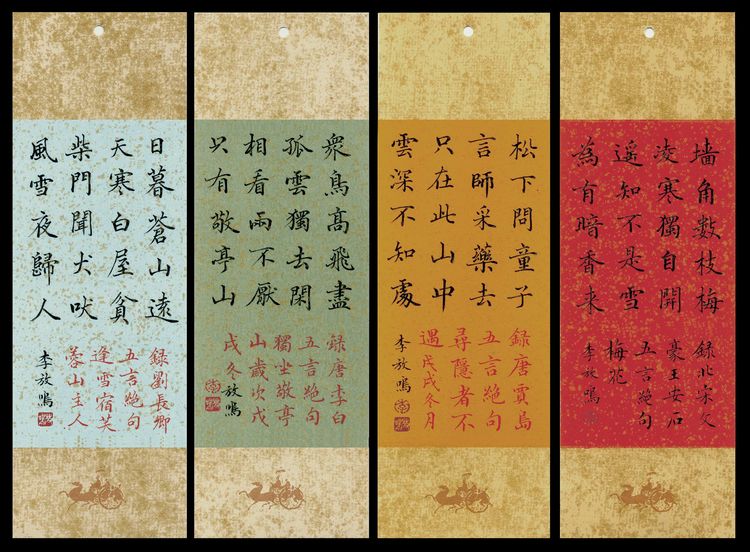 日暮蒼山遠
天寒白屋貧
柴門聞犬吠
風雪夜歸人
録劉長卿
五言絕句
逢雪宿芙
蓉山主人
李放鳴
衆鳥高飛盡
孤雲獨去閑
相看兩不厭
只有敬亭山
録唐李白
五言絕句
獨坐敬亭
山歲次戊
戌冬放鳴
松下問童子
言師采藥去
只在此山中
雲深不知處
録唐賈島
五言絕句
尋隱者不
遇戊戌冬月
李放鳴
墙角數枝梅
凌寒獨自開
遥知不是雪
為有暗香来
録北宋文
豪王安石
五言絕句
梅花
李放鳴